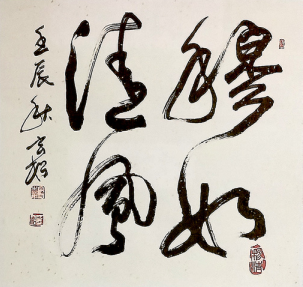 穆如
清风
壬辰秋